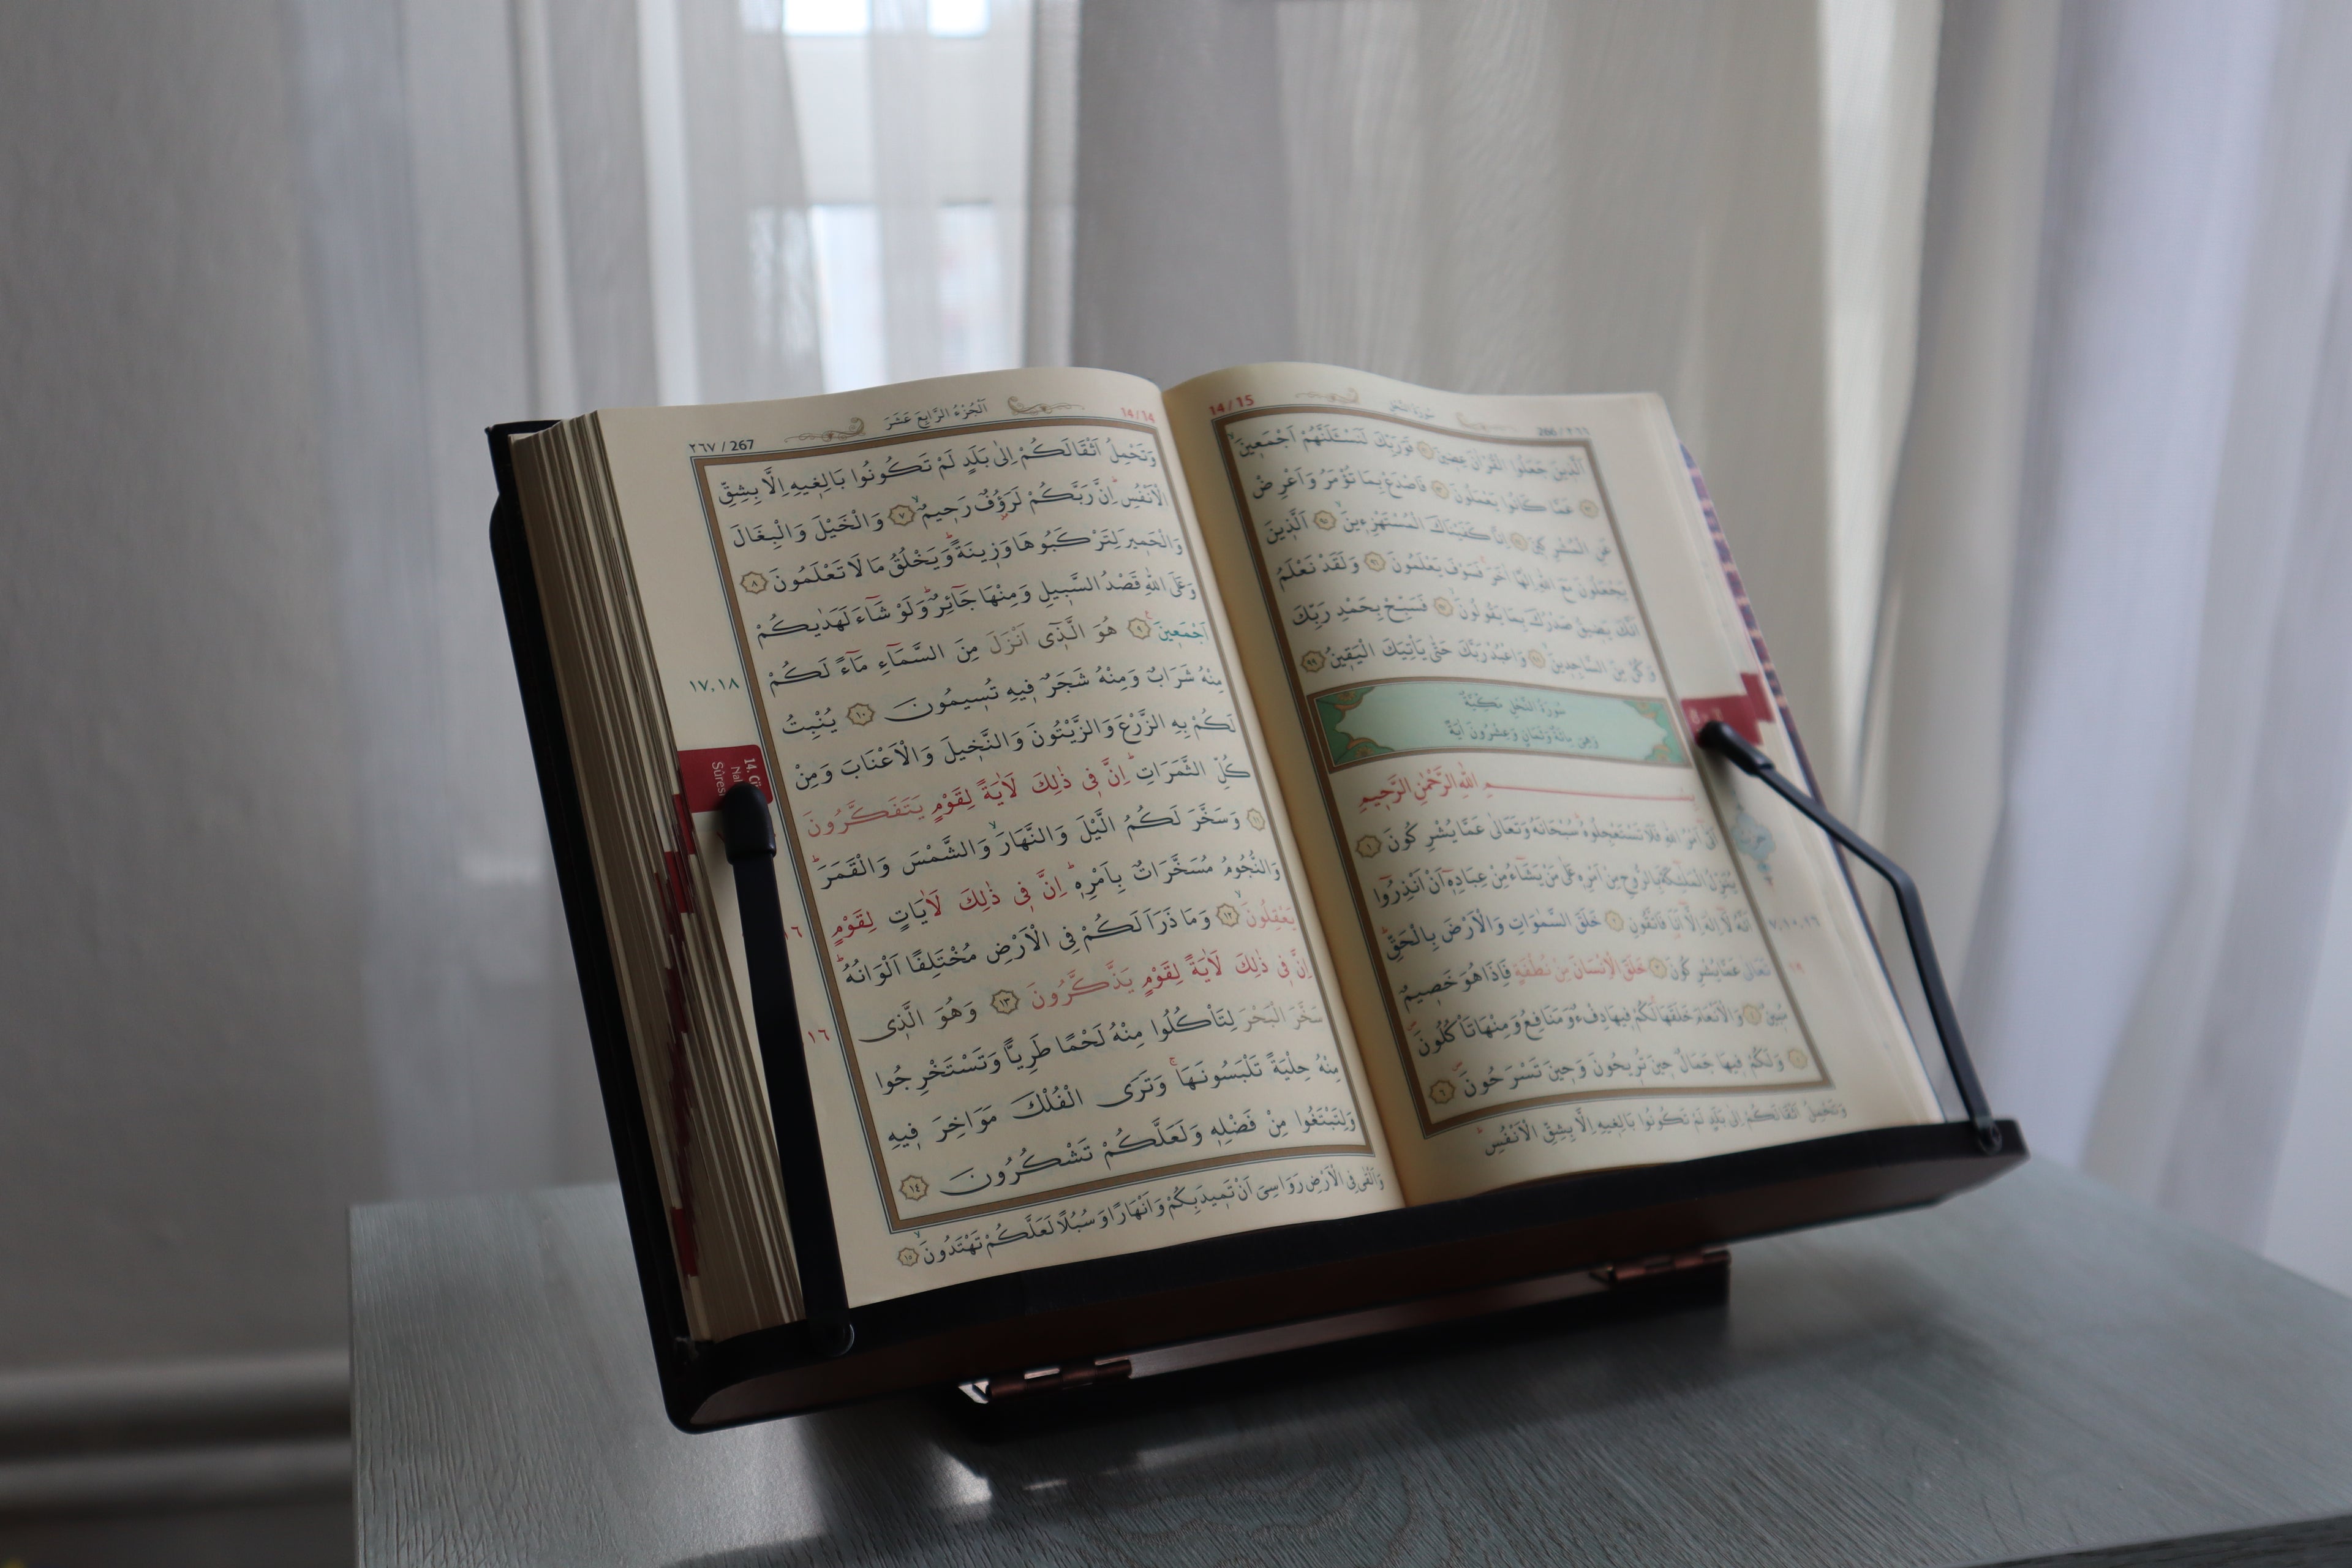 14/15
سُورَةُ النَّحْلِ
266 / ٢٦٦
اَلَّذِينَ جَعَلُوا الْقُرْاٰنَ عِضِينَ ﴿٩١﴾ فَوَرَبِّكَ لَنَسْـَٔلَنَّهُمْ اَجْمَعِينَۙ
﴿٩٢﴾ عَمَّا كَانُوا يَعْمَلُونَ ﴿٩٣﴾ فَاصْدَعْ بِمَا تُؤْمَرُ وَاَعْرِضْ
عَنِ الْمُشْرِكِينَ ﴿٩٤﴾ اِنَّا كَفَيْنَاكَ الْمُسْتَهْزِء۪ينَۙ ﴿٩٥﴾ اَلَّذِينَ
يَجْعَلُونَ مَعَ اللّٰهِ اِلٰهًا اٰخَرَۚ فَسَوْفَ يَعْلَمُونَ ﴿٩٦﴾ وَلَقَدْ نَعْلَمُ
اَنَّكَ يَضِيقُ صَدْرُكَ بِمَا يَقُولُونَۙ ﴿٩٧﴾ فَسَبِّحْ بِحَمْدِ رَبِّكَ
وَكُنْ مِنَ السَّاجِدِينَۙ ﴿٩٨﴾ وَاعْبُدْ رَبَّكَ حَتّٰى يَأْتِيَكَ الْيَقِينُ ﴿٩٩﴾
سُورَةُ النَّحْلِ مَكِّيَّةٌ
وَهِيَ مِائَةٌ وَثَمَانٍ وَعِشْرُونَ اٰيَةً
بِسْمِ اللّٰهِ الرَّحْمٰنِ الرَّحِيمِ
اَتٰٓى اَمْرُ اللّٰهِ فَلَا تَسْتَعْجِلُوهُۜ سُبْحَانَهُ وَتَعَالٰى عَمَّا يُشْرِكُونَ ﴿١﴾
يُنَزِّلُ الْمَلٰٓئِكَةَ بِالرُّوحِ مِنْ اَمْرِهِ عَلٰى مَنْ يَشَٓاءُ مِنْ عِبَادِهِٓ اَنْ اَنْذِرُٓوا
اَنَّهُ لَٓا اِلٰهَ اِلَّٓا اَنَا۬ فَاتَّقُونِ ﴿٢﴾ خَلَقَ السَّمٰوَاتِ وَالْاَرْضَ بِالْحَقِّۜ
تَعَالٰى عَمَّا يُشْرِكُونَ ﴿٣﴾ خَلَقَ الْاِنْسَانَ مِنْ نُطْفَةٍ فَاِذَا هُوَ خَصِيمٌ
مُبِينٌ ﴿٤﴾ وَالْاَنْعَامَ خَلَقَهَاۚ لَكُمْ فِيهَا دِفْءٌ وَمَنَافِعُ وَمِنْهَا تَأْكُلُونَۖ
﴿٥﴾ وَلَكُمْ فِيهَا جَمَالٌ حِينَ تُرِيحُونَ وَحِينَ تَسْرَحُونَۖ ﴿٦﴾
وَتَحْمِلُ اَثْقَالَكُمْ اِلٰى بَلَدٍ لَمْ تَكُونُوا بَالِغِيهِ اِلَّا بِشِقِّ الْاَنْفُسِۜ
14/14
اَلْجُزْءُ الرَّابِعَ عَشَرَ
٢٦٧ / 267
وَتَحْمِلُ اَثْقَالَكُمْ اِلٰى بَلَدٍ لَمْ تَكُونُوا بَالِغِيهِ اِلَّا بِشِقِّ
الْاَنْفُسِۜ اِنَّ رَبَّكُمْ لَرَؤُ۫فٌ رَحِيمٌۙ ﴿٧﴾ وَالْخَيْلَ وَالْبِغَالَ
وَالْحَمِيرَ لِتَرْكَبُوهَا وَزِينَةًۜ وَيَخْلُقُ مَا لَا تَعْلَمُونَ ﴿٨﴾
وَعَلَى اللّٰهِ قَصْدُ السَّبِيلِ وَمِنْهَا جَٓائِرٌۜ وَلَوْ شَٓاءَ لَهَدٰيكُمْ
اَجْمَعِينَ۟ ﴿٩﴾ هُوَ الَّذِٓى اَنْزَلَ مِنَ السَّمَٓاءِ مَٓاءً لَكُمْ
مِنْهُ شَرَابٌ وَمِنْهُ شَجَرٌ فِيهِ تُسِيمُونَ ﴿١٠﴾ يُنْبِتُ
لَكُمْ بِهِ الزَّرْعَ وَالزَّيْتُونَ وَالنَّخِيلَ وَالْاَعْنَابَ وَمِنْ
كُلِّ الثَّمَرَاتِۜ اِنَّ فِى ذٰلِكَ لَاٰيَةً لِقَوْمٍ يَتَفَكَّرُونَ
﴿١١﴾ وَسَخَّرَ لَكُمُ الَّيْلَ وَالنَّهَارَۙ وَالشَّمْسَ وَالْقَمَرَۜ
وَالنُّجُومُ مُسَخَّرَاتٌ بِاَمْرِهِۜ اِنَّ فِى ذٰلِكَ لَاٰيَاتٍ لِقَوْمٍ
يَعْقِلُونَۙ ﴿١٢﴾ وَمَا ذَرَاَ لَكُمْ فِى الْاَرْضِ مُخْتَلِفًا اَلْوَانُهُۜ
اِنَّ فِى ذٰلِكَ لَاٰيَةً لِقَوْمٍ يَذَّكَّرُونَ ﴿١٣﴾ وَهُوَ الَّذِى
سَخَّرَ الْبَحْرَ لِتَأْكُلُوا مِنْهُ لَحْمًا طَرِيًّا وَتَسْتَخْرِجُوا
مِنْهُ حِلْيَةً تَلْبَسُونَهَاۚ وَتَرَى الْفُلْكَ مَوَاخِرَ فِيهِ
وَلِتَبْتَغُوا مِنْ فَضْلِهِ وَلَعَلَّكُمْ تَشْكُرُونَ ﴿١٤﴾
وَاَلْقٰى فِى الْاَرْضِ رَوَاسِىَ اَنْ تَمِيدَ بِكُمْ وَاَنْهَارًا وَسُبُلًا لَعَلَّكُمْ تَهْتَدُونَۙ ﴿١٥﴾
١٧،١٨
14.
Sûresi
١٦
١٦